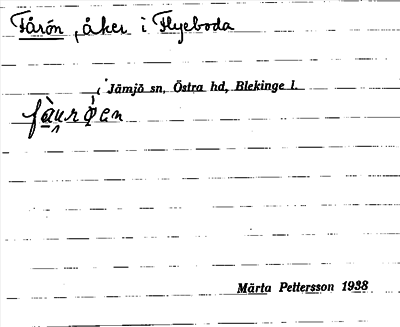 Fårön, åker i Flyeboda
i Jämjö sn, Östra hd, Blekinge l.
Märta Pettersson 1938